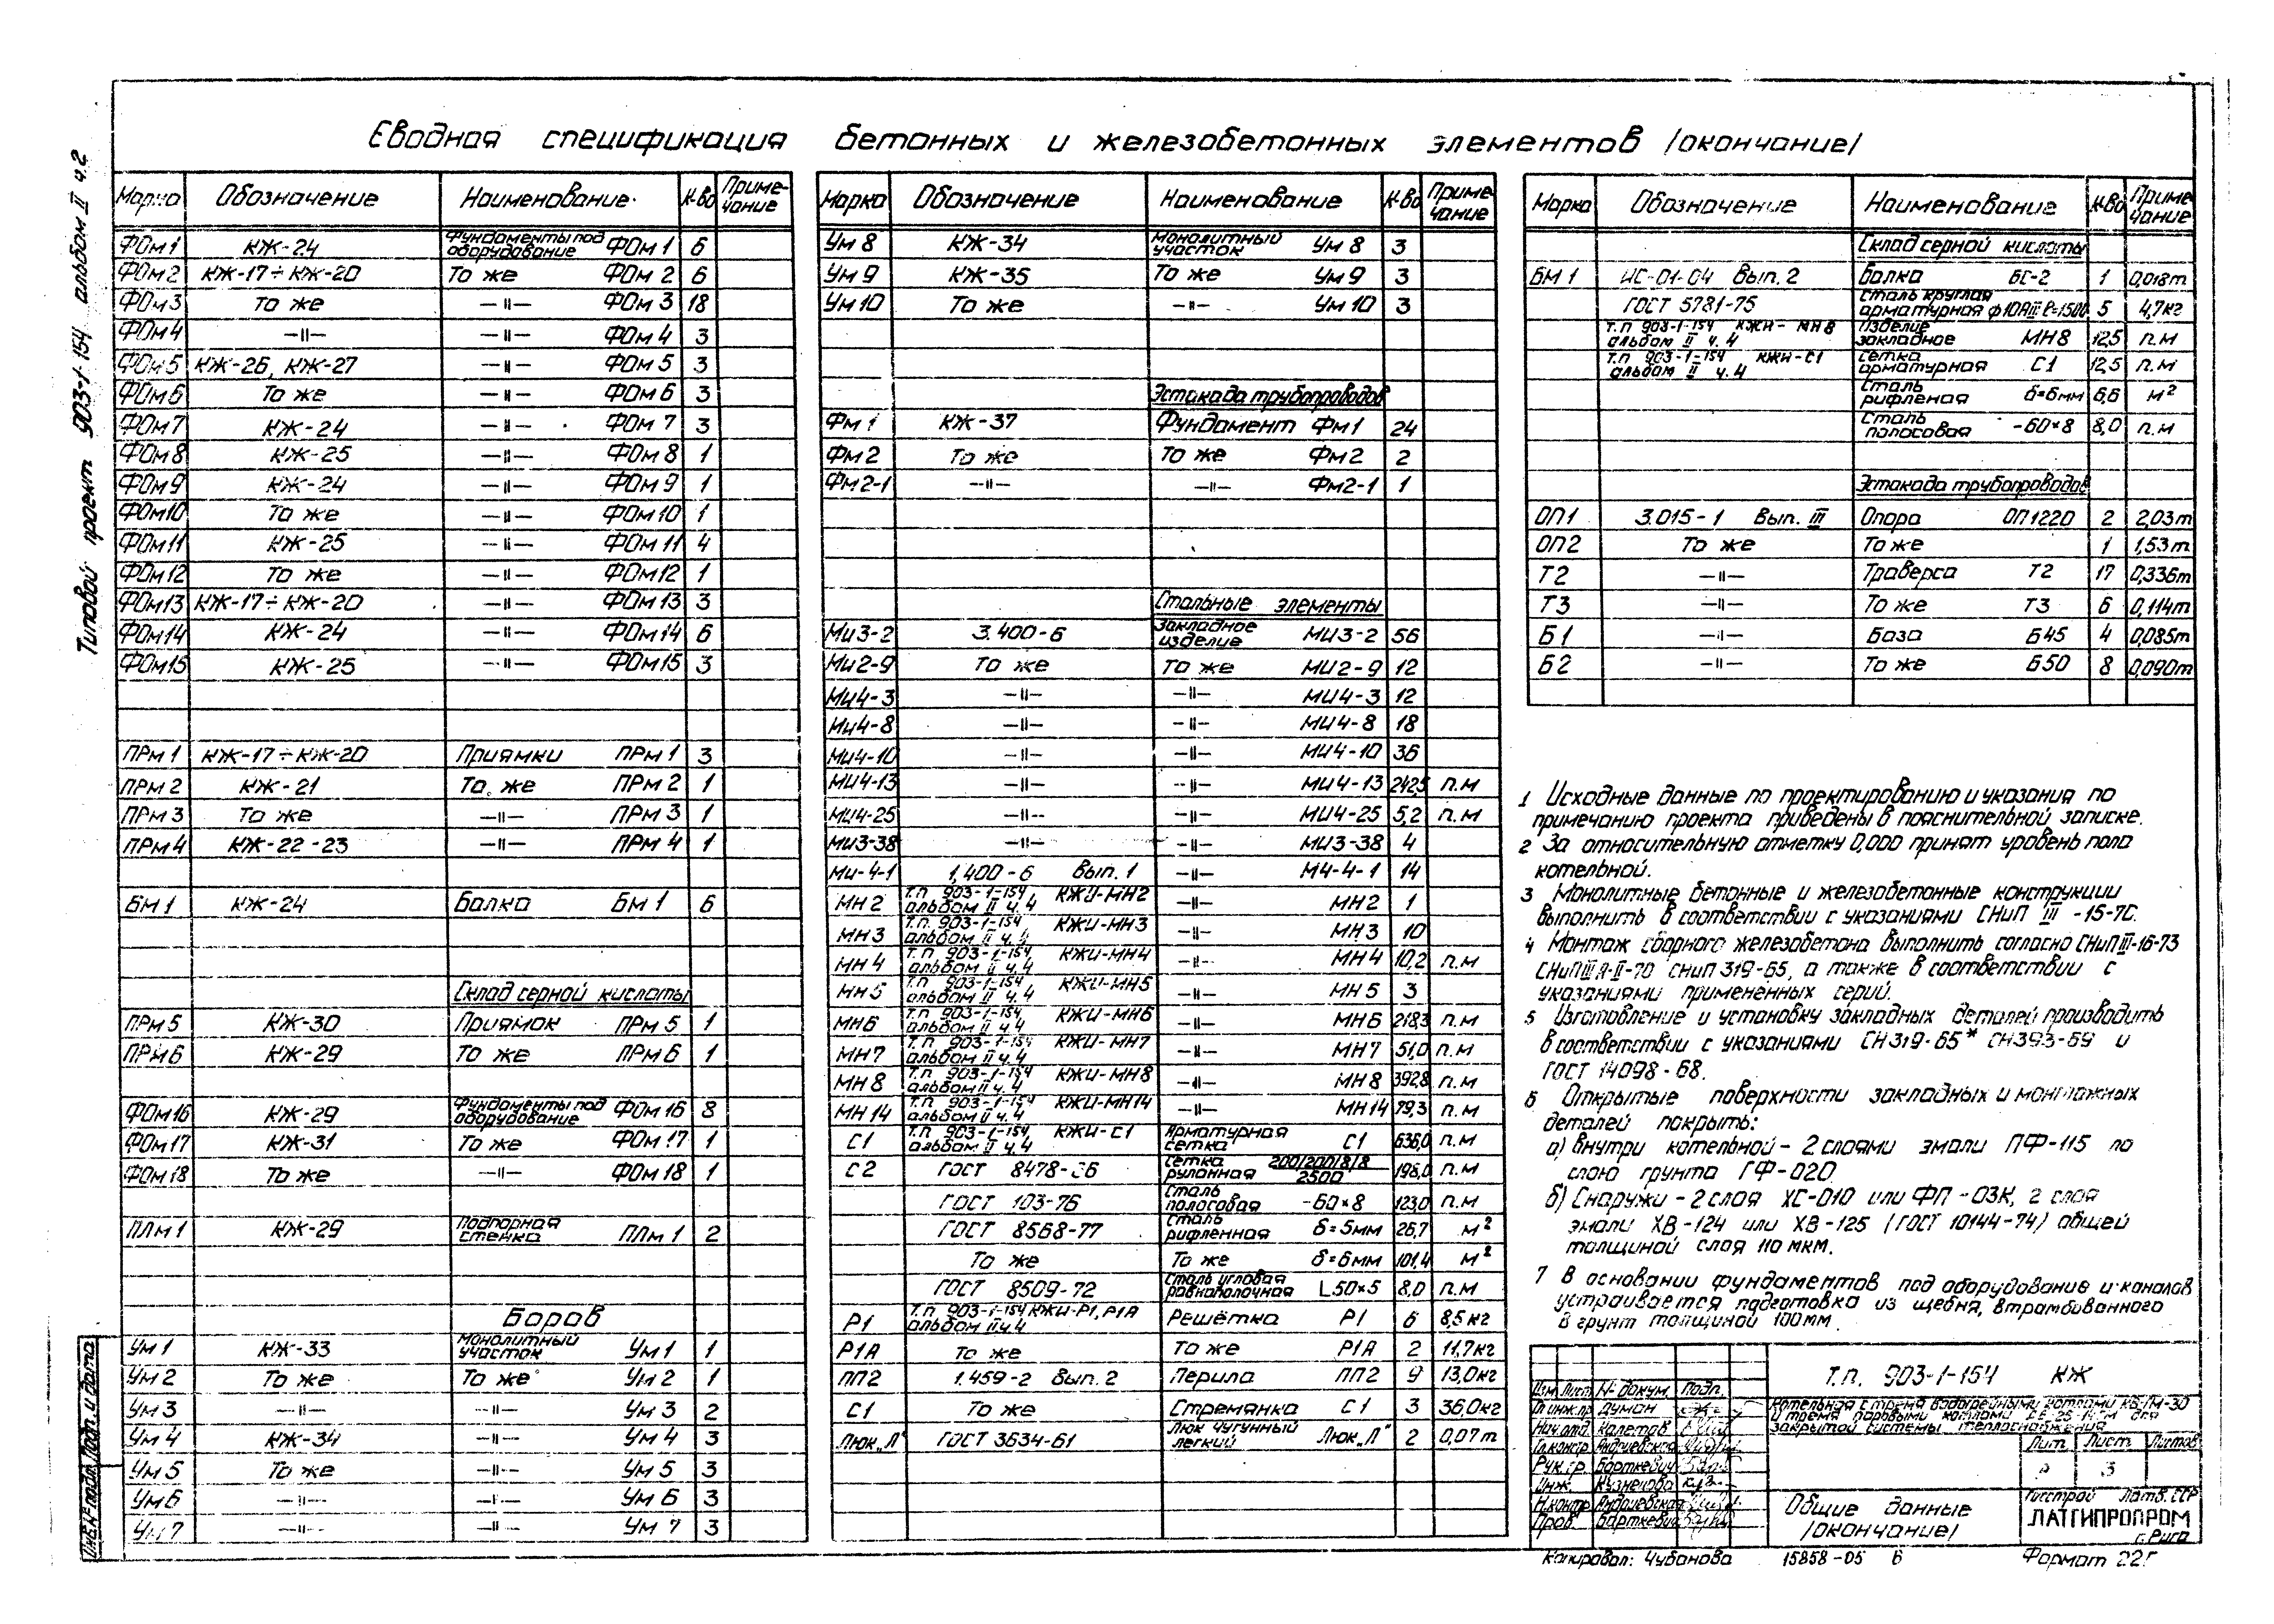 Сводная спецификация бетонных и железобетонных элементов /окончание/
Типовой проект 903-1-154 альбом II ч.2
Марка Обозначение Наименование К-во Примечание
ФОм1 КЖ-24 Фундаменты под оборудование ФОм1 6
ФОм2 КЖ-17÷КЖ-20 То же ФОм2 6
ФОм3 То же —॥— ФОм3 18
ФОм4 —॥— —॥— ФОм4 3
ФОм5 КЖ-26, КЖ-27 —॥— ФОм5 3
ФОм6 То же —॥— ФОм6 3
ФОм7 КЖ-24 —॥— ФОм7 3
ФОм8 КЖ-25 —॥— ФОм8 1
ФОм9 КЖ-24 —॥— ФОм9 1
ФОм10 То же —॥— ФОм10 1
ФОм11 КЖ-25 —॥— ФОм11 4
ФОм12 То же —॥— ФОм12 1
ФОм13 КЖ-17÷КЖ-20 —॥— ФОм13 3
ФОм14 КЖ-24 —॥— ФОм14 6
ФОм15 КЖ-25 —॥— ФОм15 3
ПРм1 КЖ-17÷КЖ-20 Приямки ПРм1 3
ПРм2 КЖ-21 То же ПРм2 1
ПРм3 То же —॥— ПРм3 1
ПРм4 КЖ-22-23 —॥— ПРм4 1
БМ1 КЖ-24 Балка БМ1 6
Склад серной кислоты
ПРм5 КЖ-30 Приямок ПРм5 1
ПРм6 КЖ-29 То же ПРм6 1
ФОм16 КЖ-29 Фундаменты под оборудование ФОм16 8
ФОм17 КЖ-31 То же ФОм17 1
ФОм18 То же —॥— ФОм18 1
ПЛм1 КЖ-29 Подпорная стенка ПЛм1 2
Боров
Ум1 КЖ-33 Монолитный участок Ум1 1
Ум2 То же То же Ум2 1
Ум3 —॥— —॥— Ум3 2
Ум4 КЖ-34 —॥— Ум4 3
Ум5 То же —॥— Ум5 3
Ум6 —॥— —॥— Ум6 3
Ум7 —॥— —॥— Ум7 3
Марка Обозначение Наименование К-во Примечание
Ум8 КЖ-34 Монолитный участок Ум8 3
Ум9 КЖ-35 То же Ум9 3
Ум10 То же —॥— Ум10 3
Эстакада трубопроводов
Фм1 КЖ-37 Фундамент Фм1 24
Фм2 То же То же Фм2 2
Фм2-1 —॥— —॥— Фм2-1 1
Стальные элементы
Ми3-2 3.400-6 Закладное изделие МИ3-2 56
Ми2-9 То же То же МИ2-9 12
МИ4-3 —॥— —॥— МИ4-3 12
Ми4-8 —॥— —॥— МИ4-8 18
Ми4-10 —॥— —॥— МИ4-10 36
МИ4-13 —॥— —॥— МИ4-13 242,5 п.м
МИ4-25 —॥— —॥— МИ4-25 5,2 п.м
Ми3-38 —॥— —॥— МИ3-38 4
Ми-4-1 1,400-6 Вып. 1 —॥— МИ-4-1 14
МН2 Т.п 903-1-154 альбом II ч.4 КЖИ-МН2 —॥— МН2 1
МН3 Т.п. 903-1-154 альбом II ч.4 КЖИ-МН3 —॥— МН3 10
МН4 Т.п 903-1-154 альбом II ч.4 КЖИ-МН4 —॥— МН4 10,2 п.м
МН5 Т.п 903-1-154 альбом II ч.4 КЖИ-МН5 —॥— МН5 3
МН6 Т.п 903-1-154 альбом II ч.4 КЖИ-МН6 —॥— МН6 218,3 п.м
МН7 Т.п 903-1-154 альбом II ч.4 КЖИ-МН7 —॥— МН7 51,0 п.м
МН8 Т.п 903-1-154 альбом II ч.4 КЖИ-МН8 —॥— МН8 392,8 п.м
МН14 Т.п 903-1-154 альбом II ч.4 КЖИ-МН14 —॥— МН14 79,3 п.м
С1 Т.п 903-1-154 альбом II ч.4 КЖИ-С1 Арматурная сетка С1 636,0 п.м
С2 ГОСТ Сетка рулонная 200/200/8/8 2500 198,0 п.м
ГОСТ 103-76 Сталь полосовая -60×8 123,0 п.м
ГОСТ 8568-77 Сталь рифленная δ=5мм 26,7 м²
То же То же δ=6мм 101,4 м²
ГОСТ 8509-72 Сталь угловая равнополочная L50×5 8,0 п.м
Р1 Т.п 903-1-154 КЖИ-Р1, Р1А альбом II ч.4 Решётка Р1 6 8,5кг
Р1А То же То же Р1А 2 11,7кг
ПП2 1.459-2 Вып. 2 Перила ПП2 9 13,0кг
С1 То же Стремянка С1 3 36,0кг
Люк„Л" ГОСТ 3634-61 Люк чугунный легкий Люк„Л" 2 0,07т
Марка Обозначение Наименование К-во Примечание
Склад серной кислоты
БМ1 ИС-01-04 Вып. 2 Балка БС-2 1 0,018т
ГОСТ 5781-75 Сталь круглая арматурная ф10АIII ℓ=1500 5 4,7кг
Т.п 903-1-154 альбом II ч.4 КЖИ-МН8 Изделие закладное МН8 12,5 п.м
Т.п 903-1-154 альбом II ч.4 КЖИ-С1 Сетка арматурная С1 12,5 п.м
Сталь рифленая δ=6мм 6,6 м²
Сталь полосовая -60×8 8,0 п.м
Эстакада трубопроводов
ОП1 3.015-1 Вып. III Опора ОП1220 2 2,03т
ОП2 То же То же 1 1,53т
Т2 —॥— Траверса Т2 17 0,336т
Т3 —॥— То же Т3 6 0,114т
Б1 —॥— База Б45 4 0,085т
Б2 —॥— То же Б50 8 0,090т
1 Исходные данные по проектированию и указания по
примечанию проекта приведены в пояснительной записке.
2 За относительную отметку 0,000 принят уровень пола
котельной.
3 Монолитные бетонные и железобетонные конструкции
выполнить в соответствии с указаниями СНиП III
4 Монтаж сборного железобетона выполнить согласно СНиП III-16-73
СНиП 319-65, а также в соответствии с
указаниями примененных серий.
5 Изготовление и установку закладных деталей производить
в соответствии с указаниями СН319-65* СН393-69 и
ГОСТ 14098-68.
6 Открытые поверхности закладных и монтажных
деталей покрыть:
а) Внутри котельной - 2 слоями эмали ПФ-115 по
слою грунта ГФ-020
б) Снаружи - 2 слоя ХС-010 или ФЛ-03К, 2 слоя
эмали ХВ-124 или ХВ-125 (ГОСТ 10144-74) общей
толщиной слоя 110 мкм.
7 В основании фундаментов под оборудование и каналов
устраивается подготовка из щебня, втрамбованного
в грунт толщиной 100мм.
Т.п. 903-1-154 КЖ
Котельная с тремя водогрейными котлами КВ-ГМ-30
и тремя паровыми котлами ДЕ-25-14ГМ для
закрытой системы теплоснабжения
Изм Лист № докум. Подп.
Гл инж.пр Думан
Нач.отд. Калетов
Гл.констр. Андриевская
Рук.гр. Барткевич
Инж. Кузнецова
Н.контр Андриевская
Пров. Барткевич
Лит. Лист Листов
Р 3
Общие данные
/окончание/
Госстрой Латв.ССР
ЛАТГИПРОПРОМ
г.Рига
Инв.№ подл. Подп. и дата
Копировал: Чубанова 15858-05 6 Формат 22Г